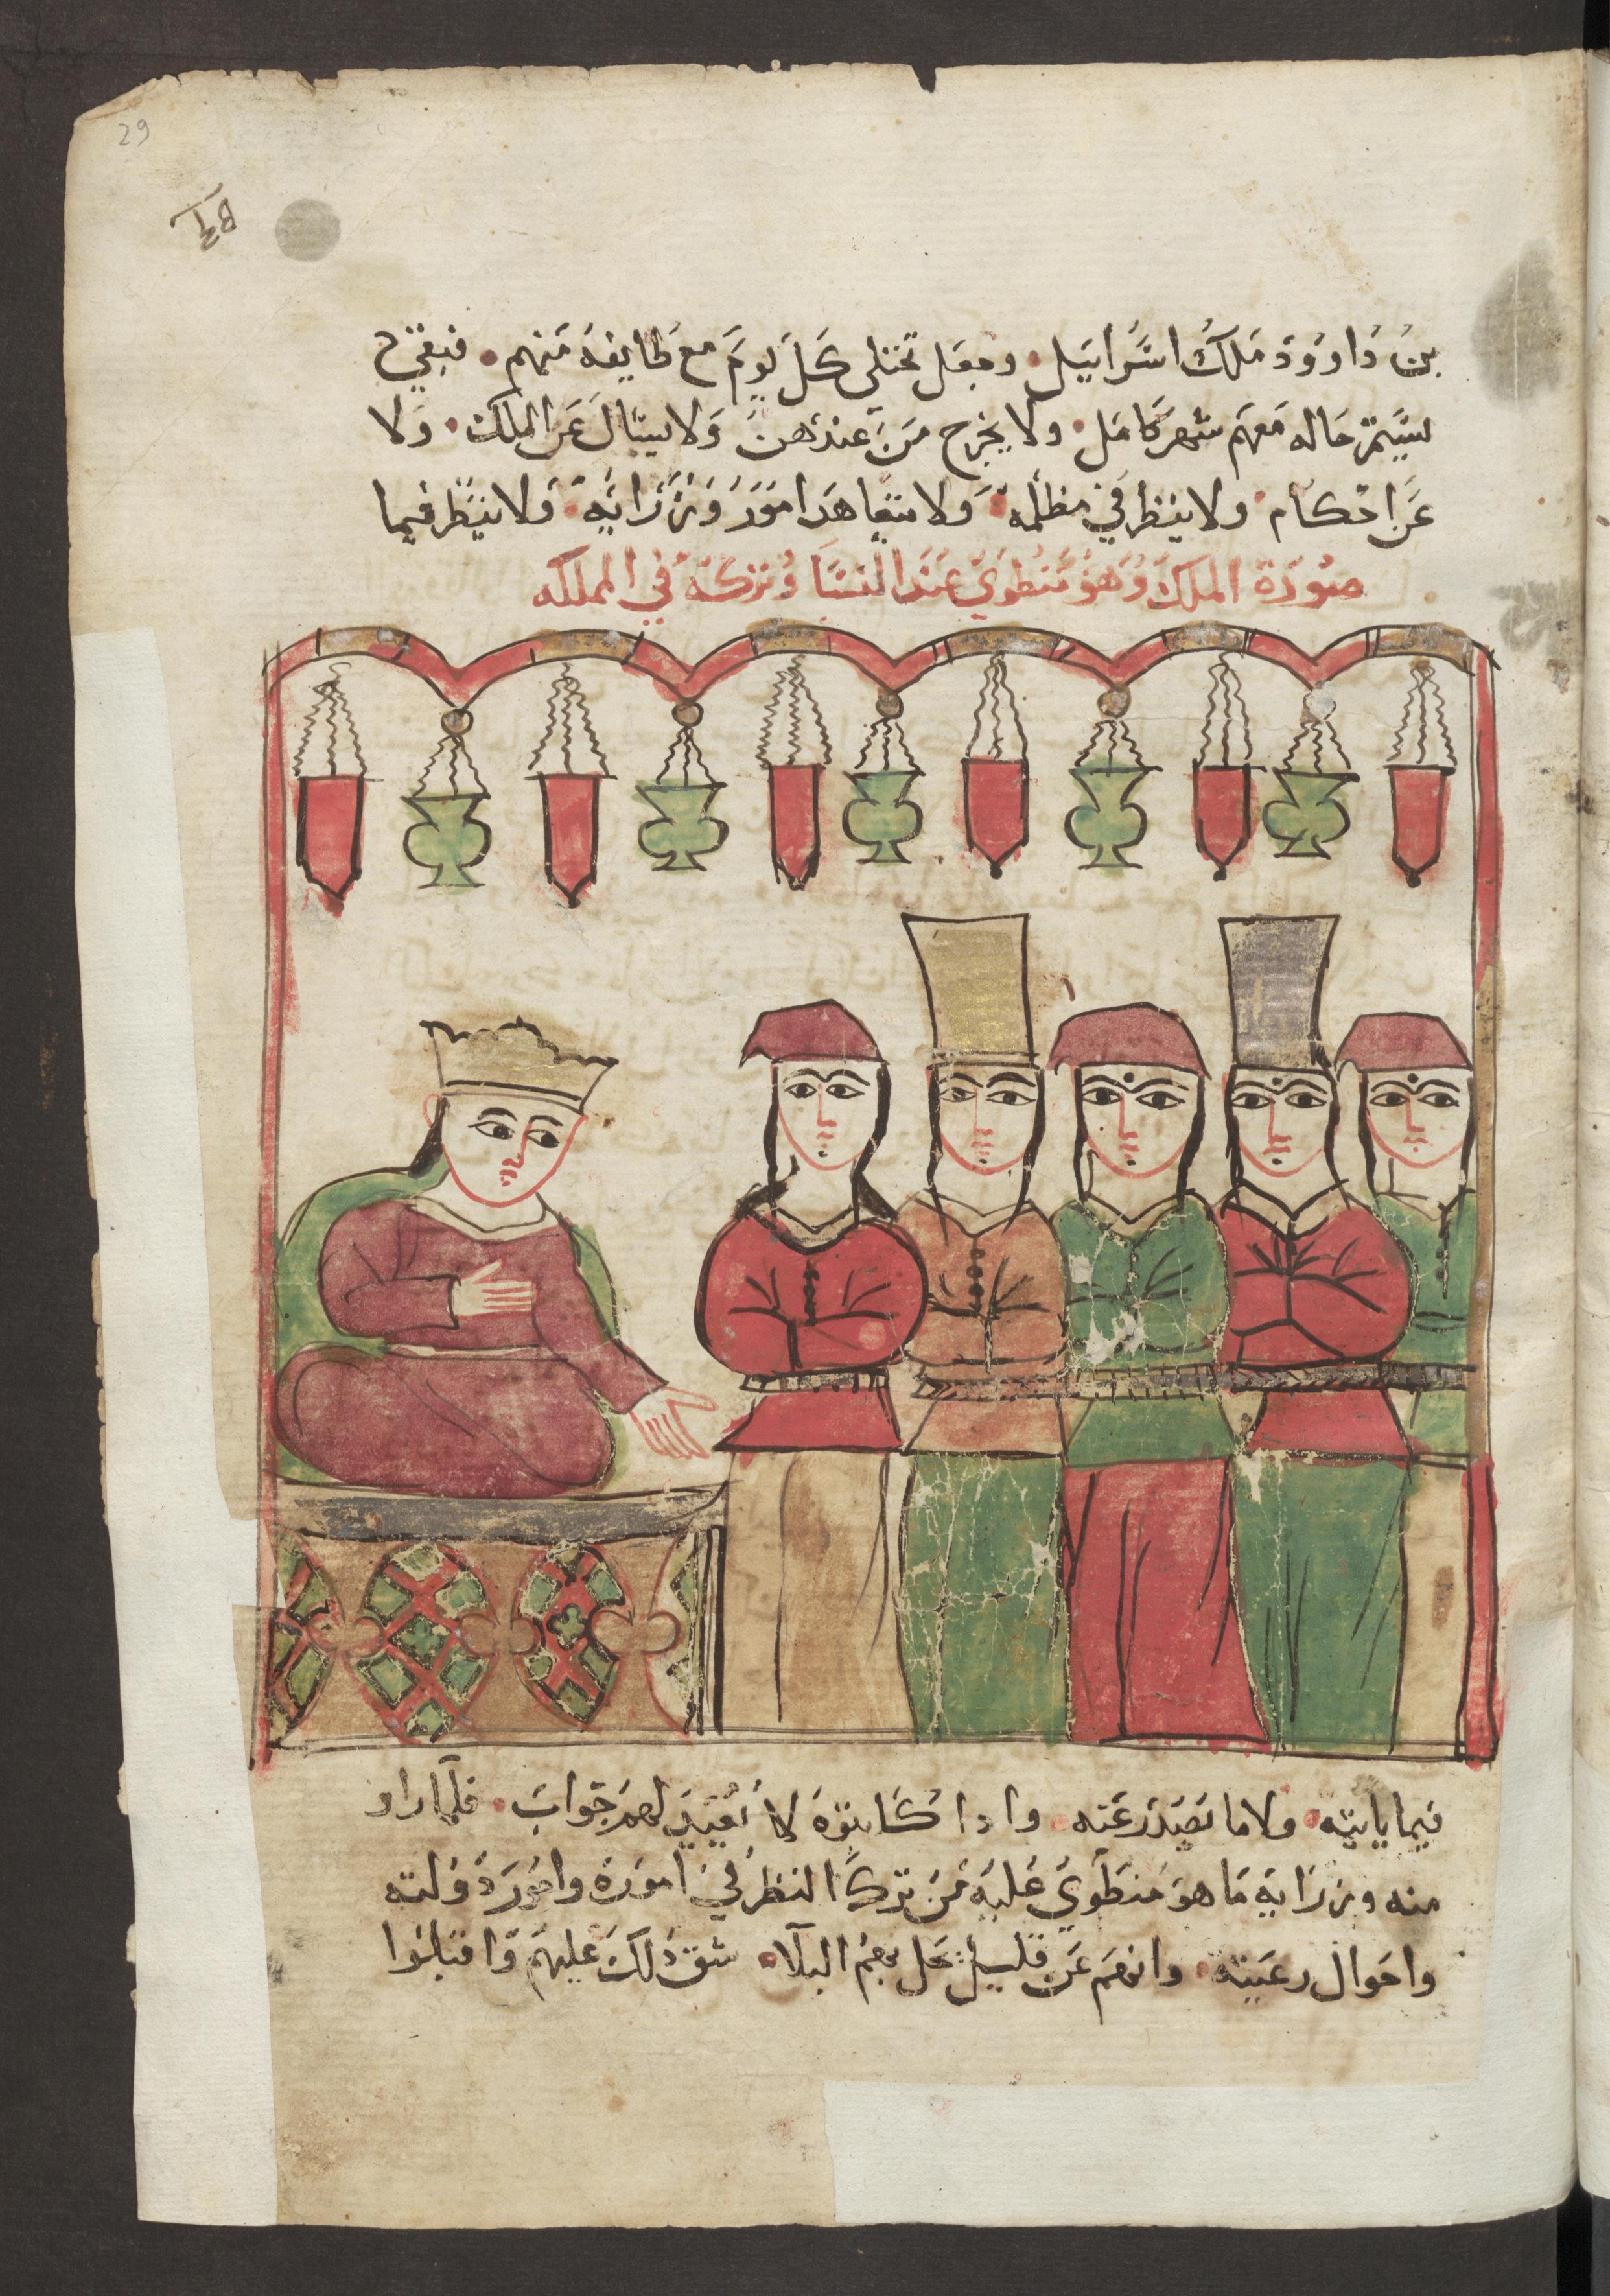 29
بن داوود ملك اسراييل. وجعل تختلي كل يوم مع طايفة منهم. فبقي
يستمر حاله معهم شهر كامل. ولا يخرج من عندهن ولا يسال عن الملك. ولا
عن احكام. ولا ينظر في مظلمه. ولا يتعاهد امور وزرايه. ولا ينظر فيما
صورة الملك وهو منطوي عند النسا وتركه في المملكه
فيما ياتيه. ولا ما يصدر عنه. وادا كاتبوه لا يعيد لهم جواب. فلما راو
منه وزرايه ما هو منطوي عليه من ترك النظر في اموره وامور دولته
واحوال رعيته. وانهم عن قليل يحل بهم البلا. شق دلك عليهم واقبلوا